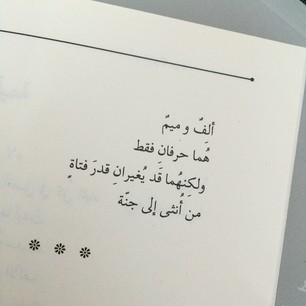 ألفٌ و ميمٌ
هُما حرفانِ فقط
ولكِنهُما قَد يُغيرانِ قدرَ فتاةٍ
من أُنثى إلى جنّة
※ ※ ※